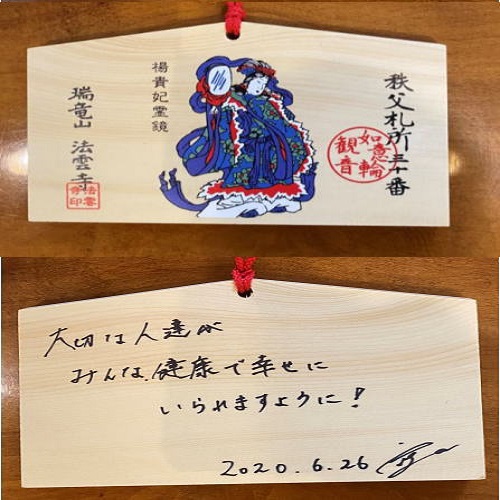 秩父札所三十番
如意輪
観音
楊貴妃霊鏡
瑞竜山 法雲寺
法雲
寺印
大切な人達が
みんな、健康で幸せに
いられますように!
2020.6.26